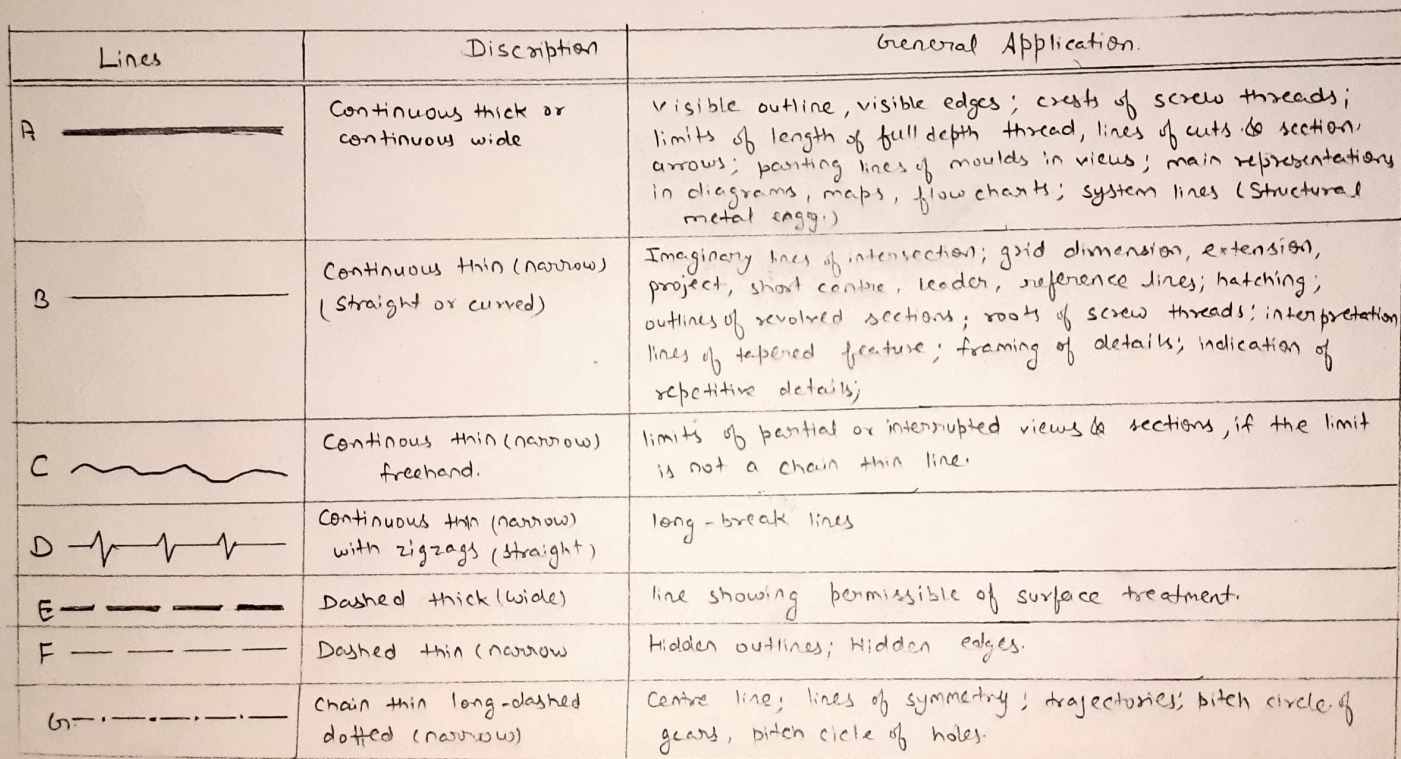 Lines Discription General Application.
A
Continuous thick or
continuous wide
visible outline, visible edges; crests of screw threads;
limits of length of full depth thread, lines of cuts & section
arrows; parting lines of moulds in views; main representations
in diagrams, maps, flow charts; system lines (Structural
metal engg.)
B
Continuous thin (narrow)
(straight or curved)
Imaginary lines of intersection; grid dimension, extension,
project, short centre, leader, reference lines; hatching;
outlines of revolved sections; roots of screw threads; interpretation
lines of tapered feature; framing of details; indication of
repetitive details;
C
Continous thin (narrow)
freehand.
limits of partial or interrupted views & sections, if the limit
is not a chain thin line.
D
Continuous thin (narrow)
with zigzags (straight)
long-break lines
E
Dashed thick (wide)
line showing permissible of surface treatment.
F
Dashed thin (narrow
Hidden outlines; Hidden edges.
G
Chain thin long-dashed
dotted (narrow)
Centre line; lines of symmetry; trajectories; pitch circle of
gears, pitch cicle of holes.